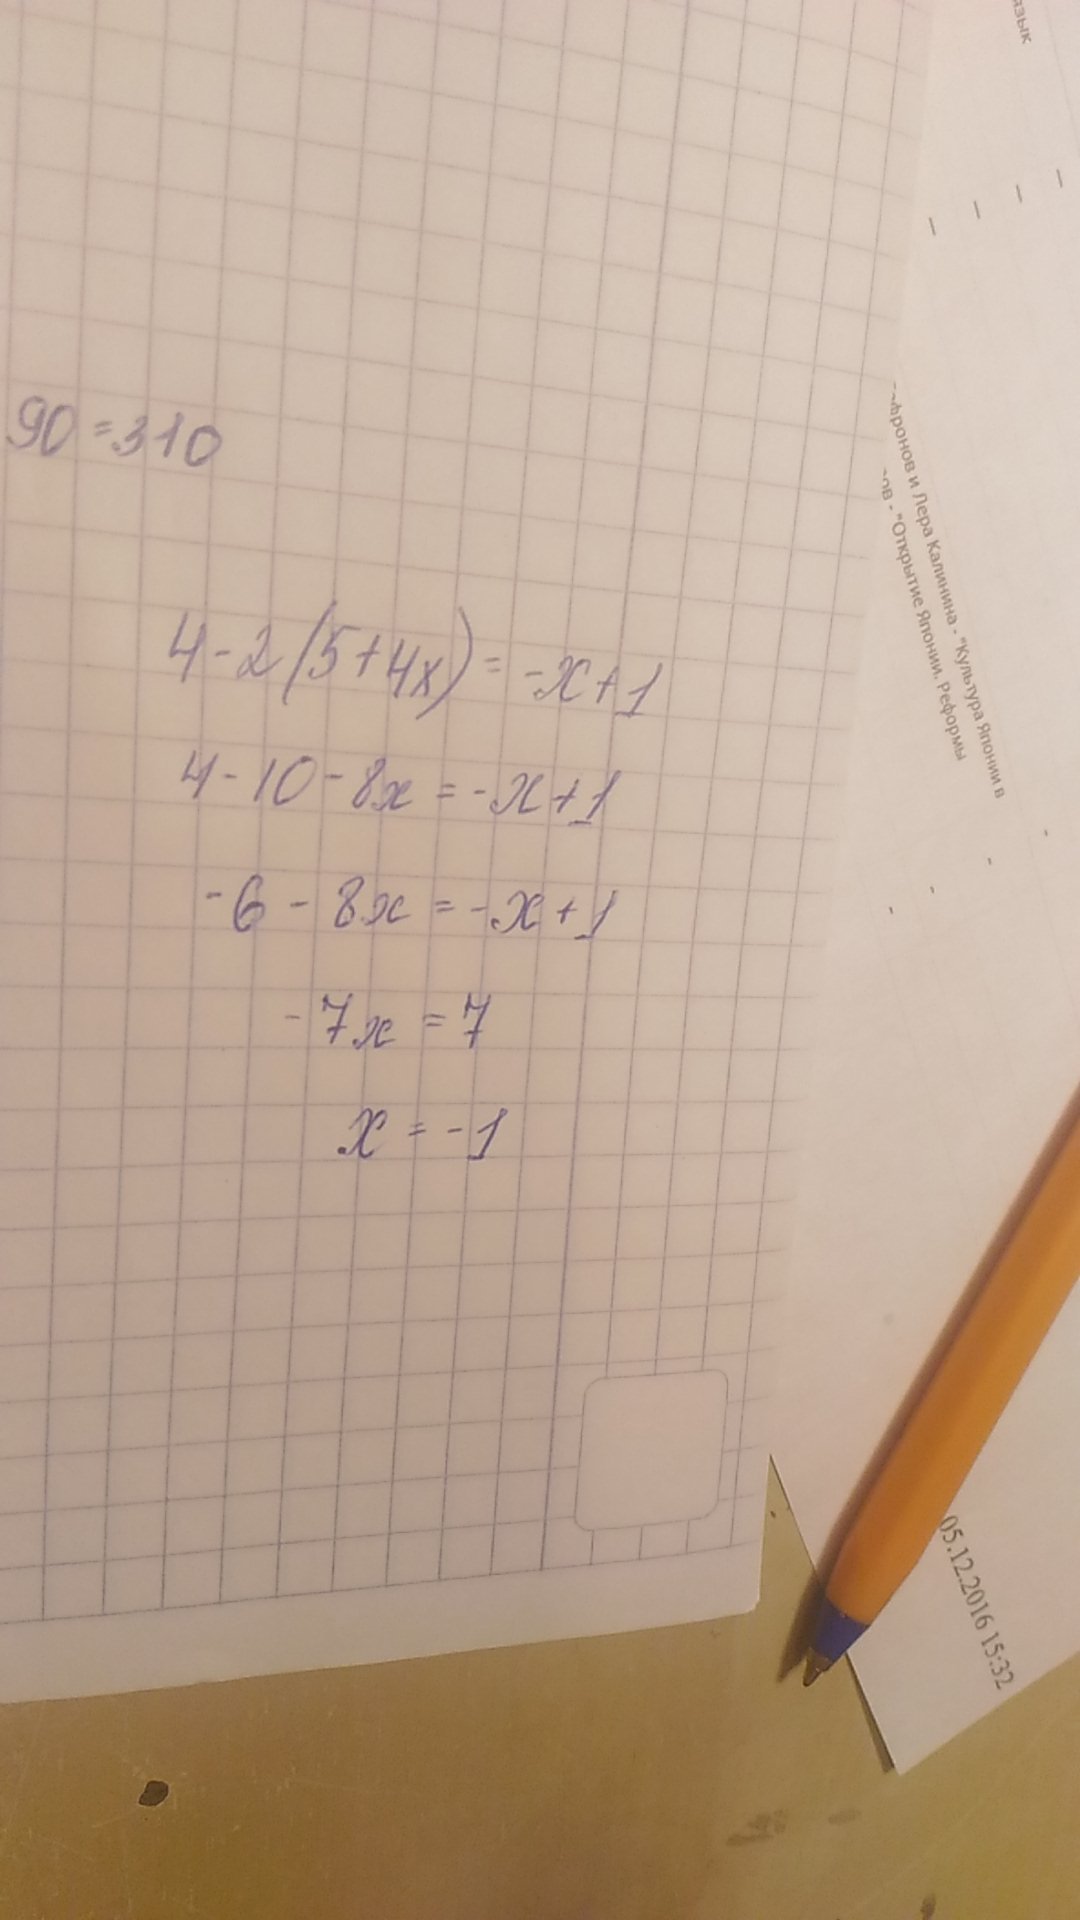 язык
90 = 310
4 - 2 (5 + 4x) = -x + 1
4 - 10 - 8x = -x + 1
-6 - 8x = -x + 1
-7x = 7
x = -1
и Лера Калинина - "Культура Японии в
- "Открытие Японии. Реформы
05.12.2016 15:32